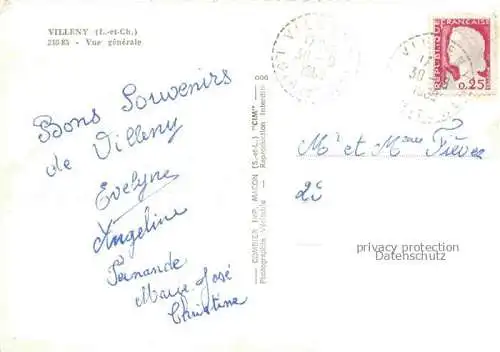 VILLENY (L.-et-Ch.)
Vue générale
Bons Souvenirs
de Villeny
Evelyne
Angeline
Fernande
Marie José
Christine
COMBIER IMP. MACON (S.-et-L.) "CIM"
Photographie Véritable - Reproduction Interdite
REPUBLIQUE FRANÇAISE
0,25
VILLENY
17
30
Mr et Mme
privacy protection
Datenschutz